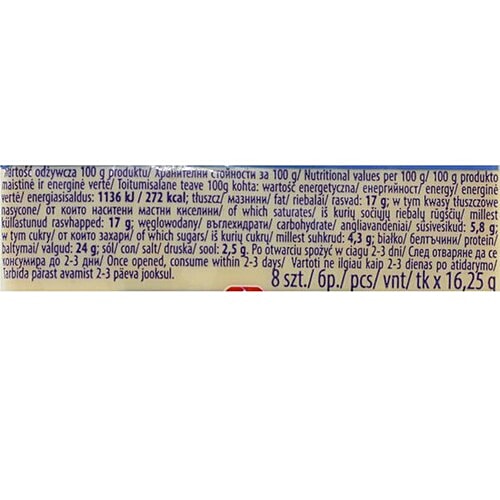 Wartość odżywcza 100 g produktu/ Хранителни стойности за 100 g/ Nutritional values per 100 g/ 100 g produkto
maistinė ir energinė vertė/ Toitumisalane teave 100g kohta: wartość energetyczna/ енергийност/ energy/ energinė
vertė/ energiasisaldus: 1136 kJ / 272 kcal; tłuszcz/ мазнини/ fat/ riebalai/ rasvad: 17 g; w tym kwasy tłuszczowe
nasycone/ от които наситени мастни киселини/ of which saturates/ iš kurių sočiųjų riebalų rūgščių/ millest
küllastunud rasvhapped: 17 g; węglowodany/ въглехидрати/ carbohydrate/ angliavandeniai/ süsivesikud: 5,8 g;
w tym cukry/ от които захари/ of which sugars/ iš kurių cukrų/ millest suhkrud: 4,3 g; białko/ белтъчини/ protein/
baltymai/ valgud: 24 g; sól/ сол/ salt/ druska/ sool: 2,5 g. Po otwarciu spożyć w ciągu 2-3 dni/ След отваряне да се
консумира до 2-3 дни/ Once opened, consume within 2-3 days/ Vartoti ne ilgiau kaip 2-3 dienas po atidarymo/
Tarbida pärast avamist 2-3 päeva jooksul.
8 szt./ бр./ pcs/ vnt/ tk x 16,25 g